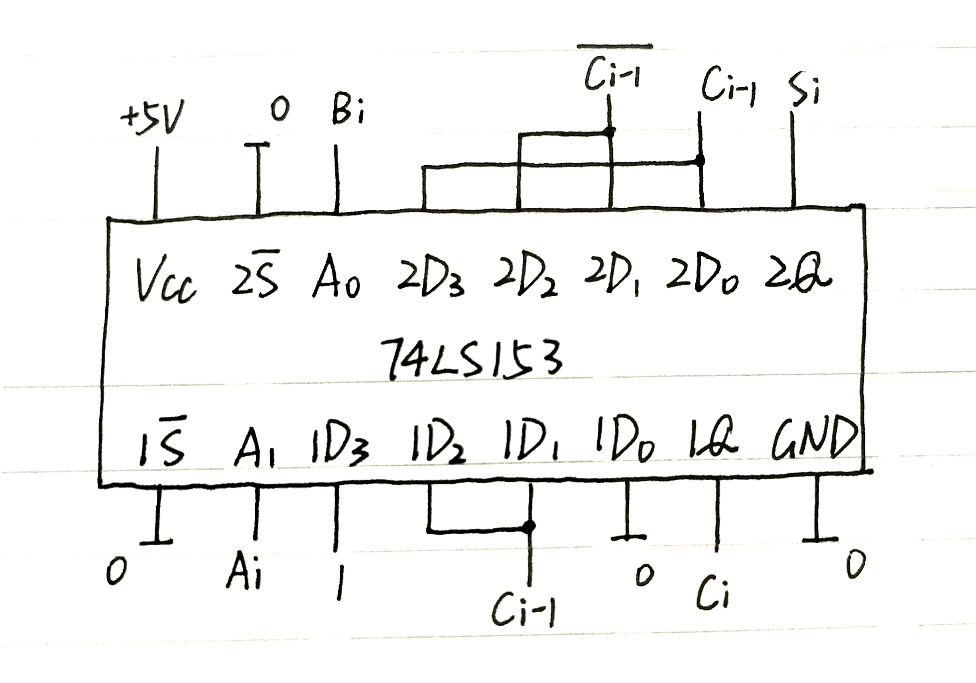 +5V 0 Bi C̅i̅-̅1̅ Ci-1 Si
Vcc 2S̅ A₀ 2D₃ 2D₂ 2D₁ 2D₀ 2Q
74LS153
1S̅ A₁ 1D₃ 1D₂ 1D₁ 1D₀ 1Q GND
0 Ai 1 Ci-1 0 Ci 0